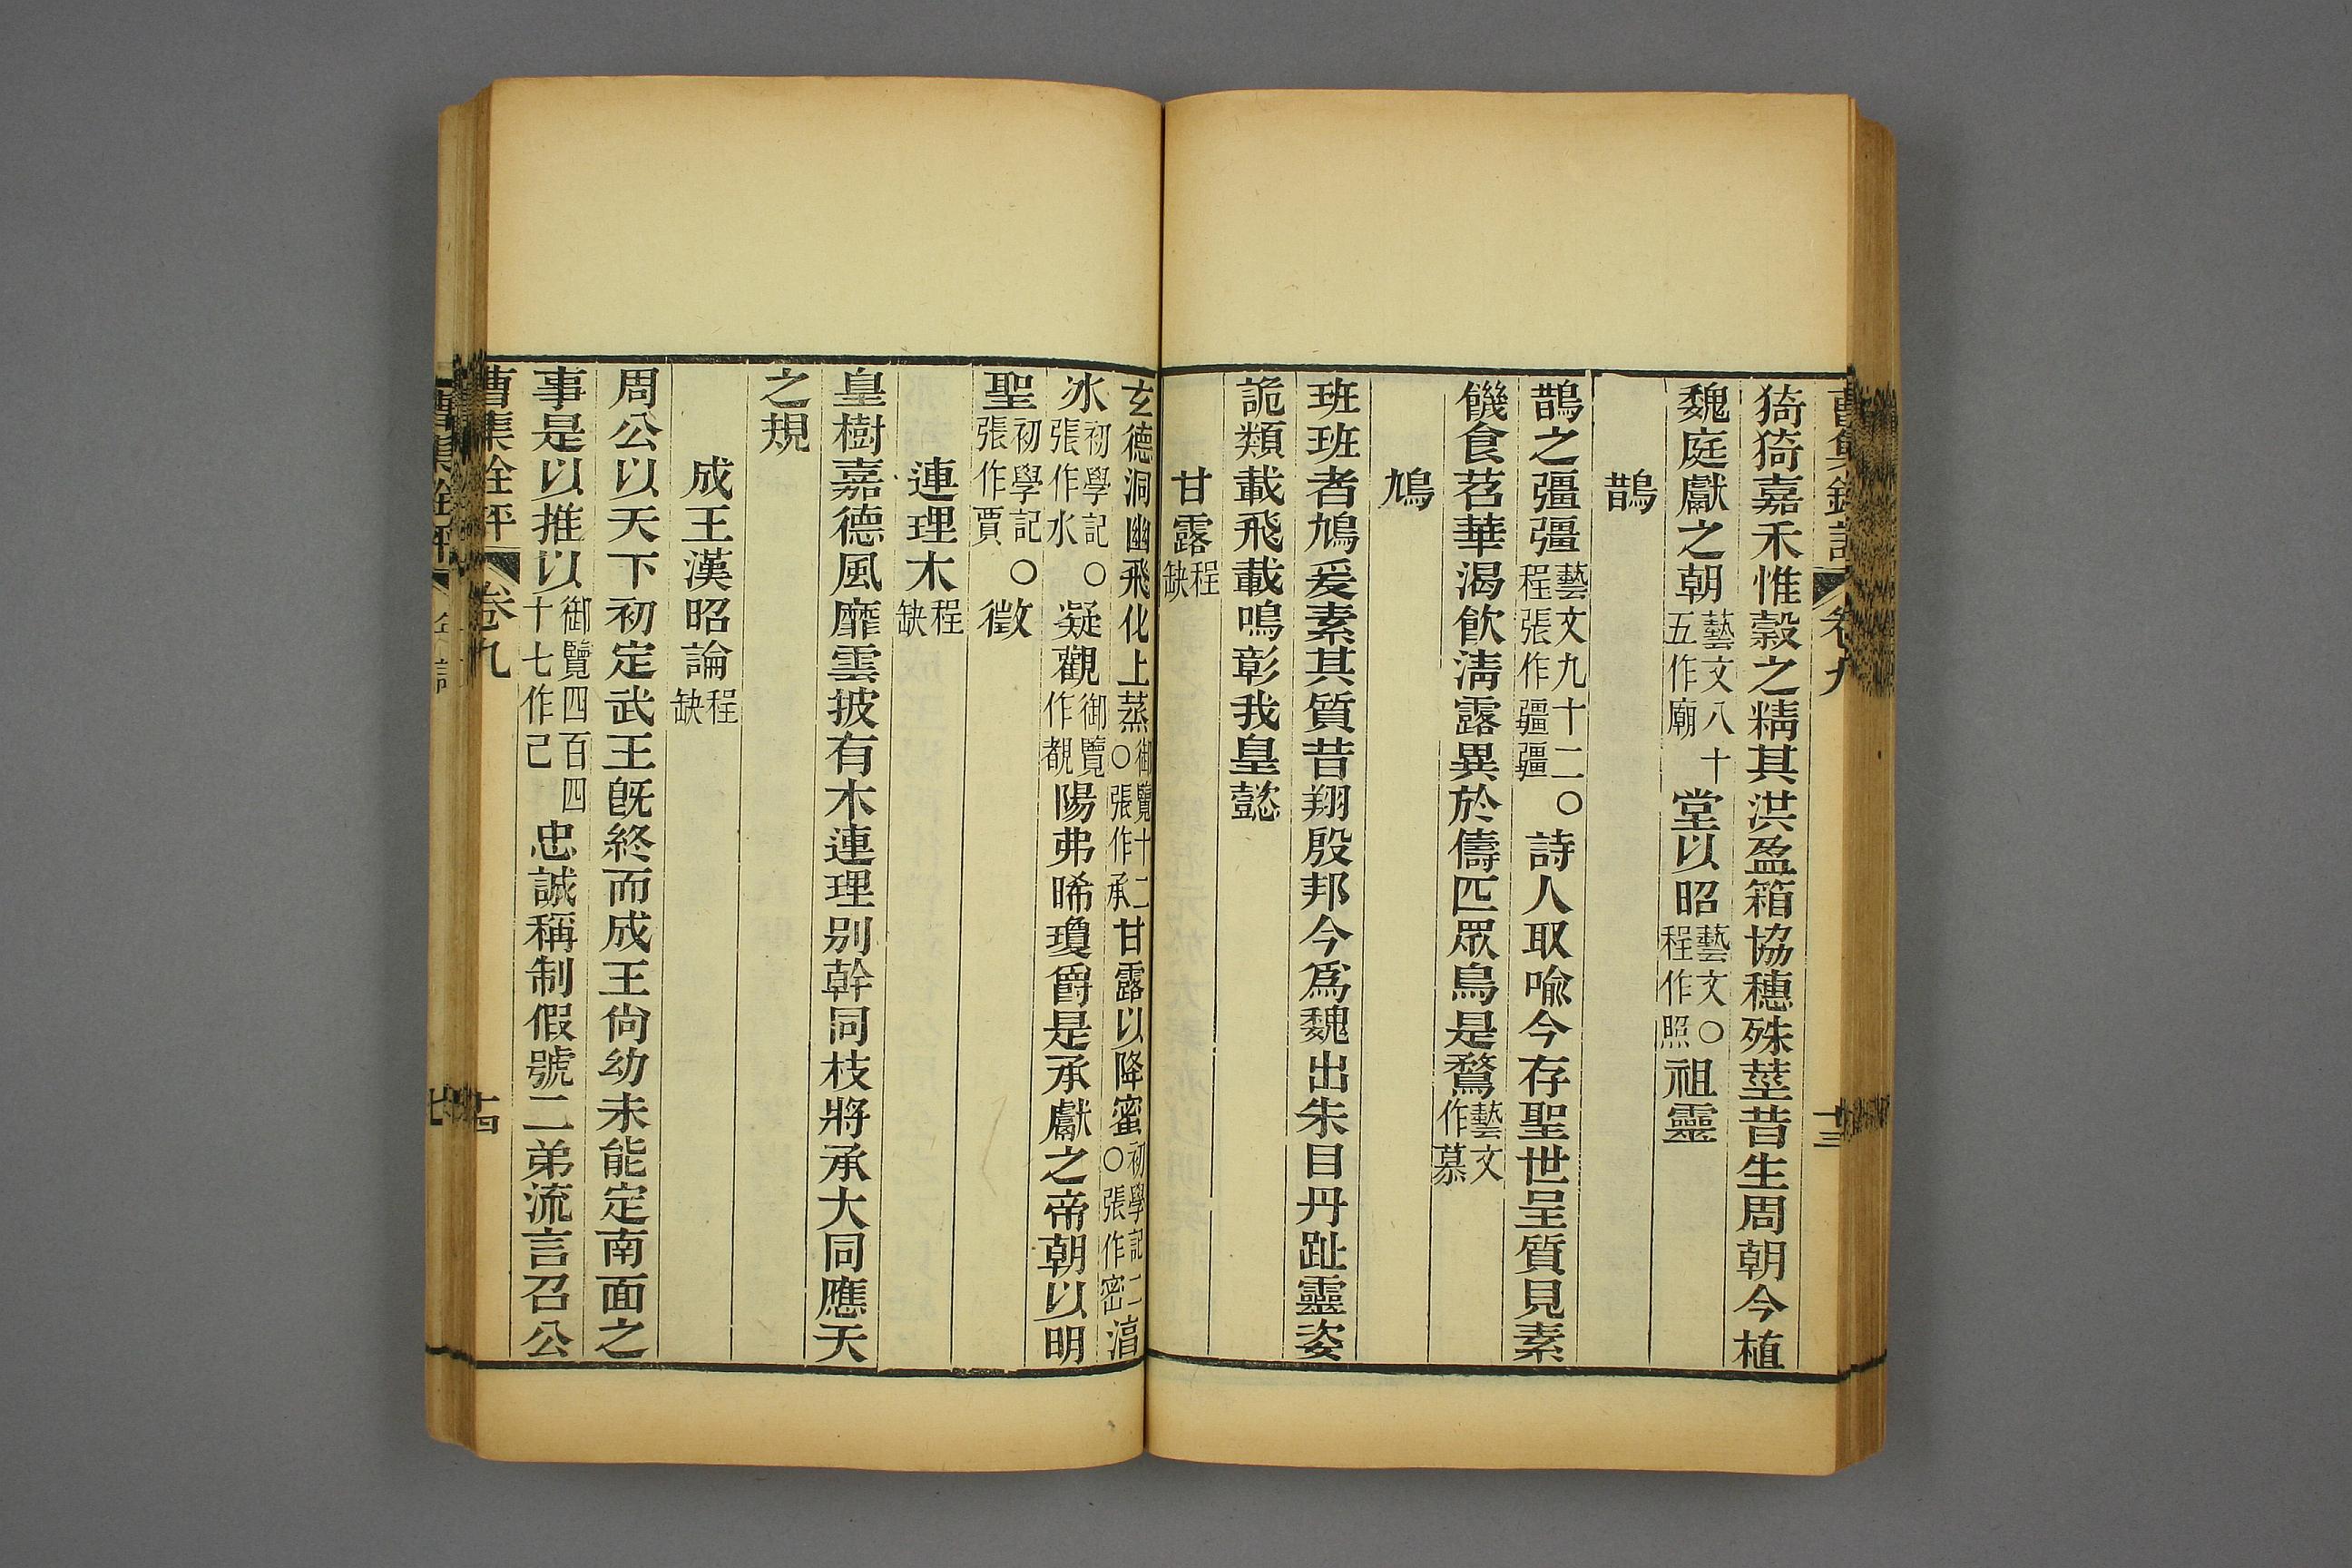 猗猗嘉禾惟穀之精其洪盈箱協穗殊莖昔生周朝今植
魏庭獻之朝藝文八十五作廟堂以昭藝文○程作照祖靈
鵲
鵲之彊彊藝文九十二○程張作疆疆詩人取喻今存聖世呈質見素
饑食苕華渴飲淸露異於儔匹眾鳥是鶩藝文作慕
鳩
班班者鳩爰素其質昔翔殷邦今爲魏出朱目丹趾靈姿
詭類載飛載鳴彰我皇懿
甘露程缺
玄德洞幽飛化上蒸御覽十二○張作承甘露以降蜜初學記二○張作密淯
冰初學記○張作水凝觀御覽作覩陽弗晞瓊爵是承獻之帝朝以明
聖初學記○張作賈徵
連理木程缺
皇樹嘉德風靡雲披有木連理别幹同枝將承大同應天
之規
成王漢昭論程缺
周公以天下初定武王旣終而成王尙幼未能定南面之
事是以推以御覽四百四十七作己忠誠稱制假號二弟流言召公
曹集銓評 卷九 十四